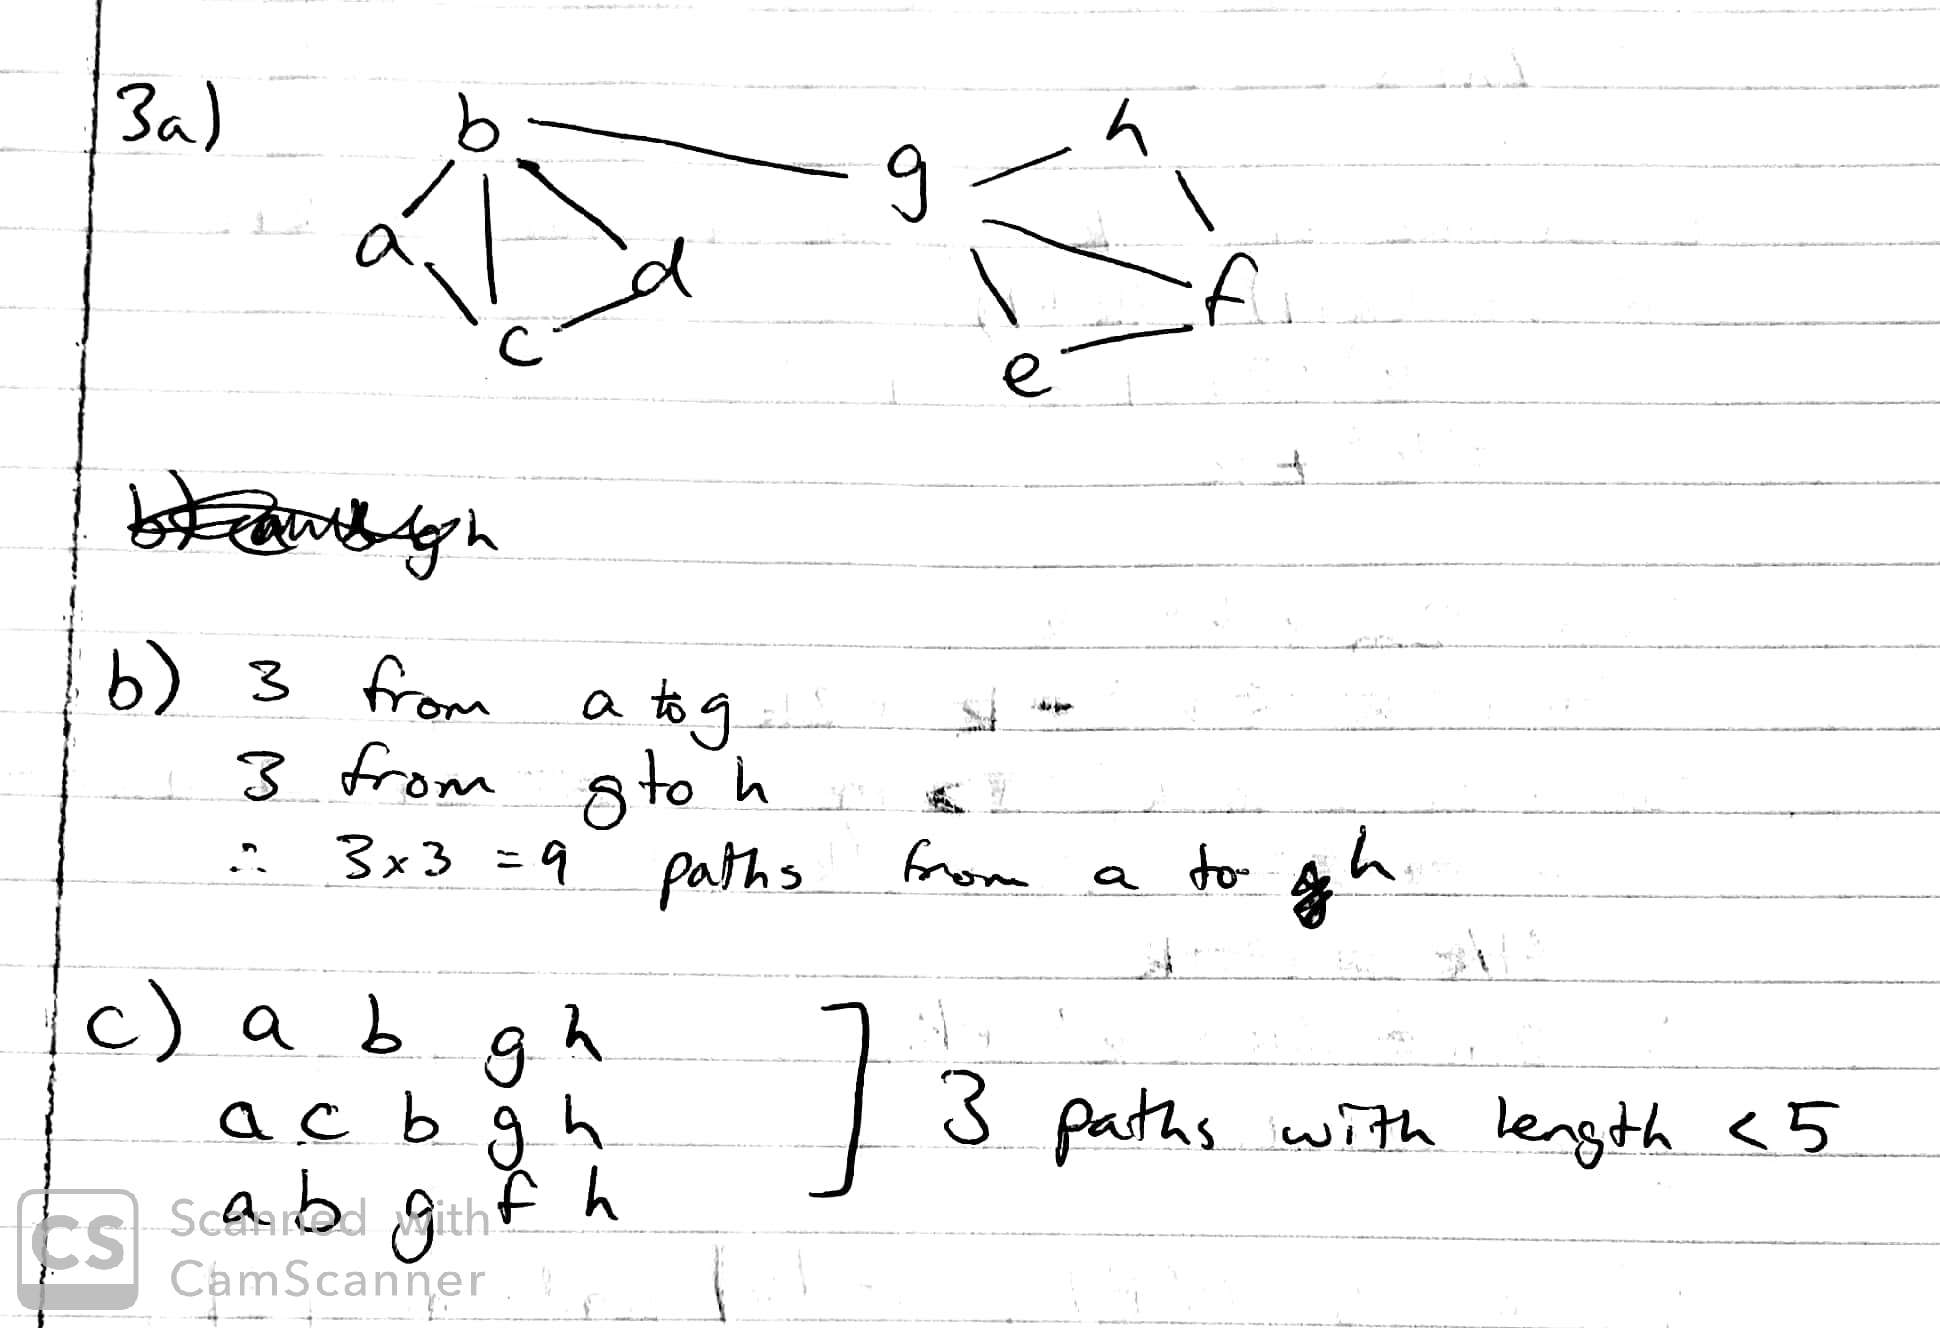 3a)
b
h
g
a
d
f
c
e
gh
b) 3 from a to g
3 from g to h
∴ 3×3 = 9 paths from a to h
c) a b g h
a c b g h
] 3 paths with length < 5
a b g f h
CS Scanned with
CamScanner